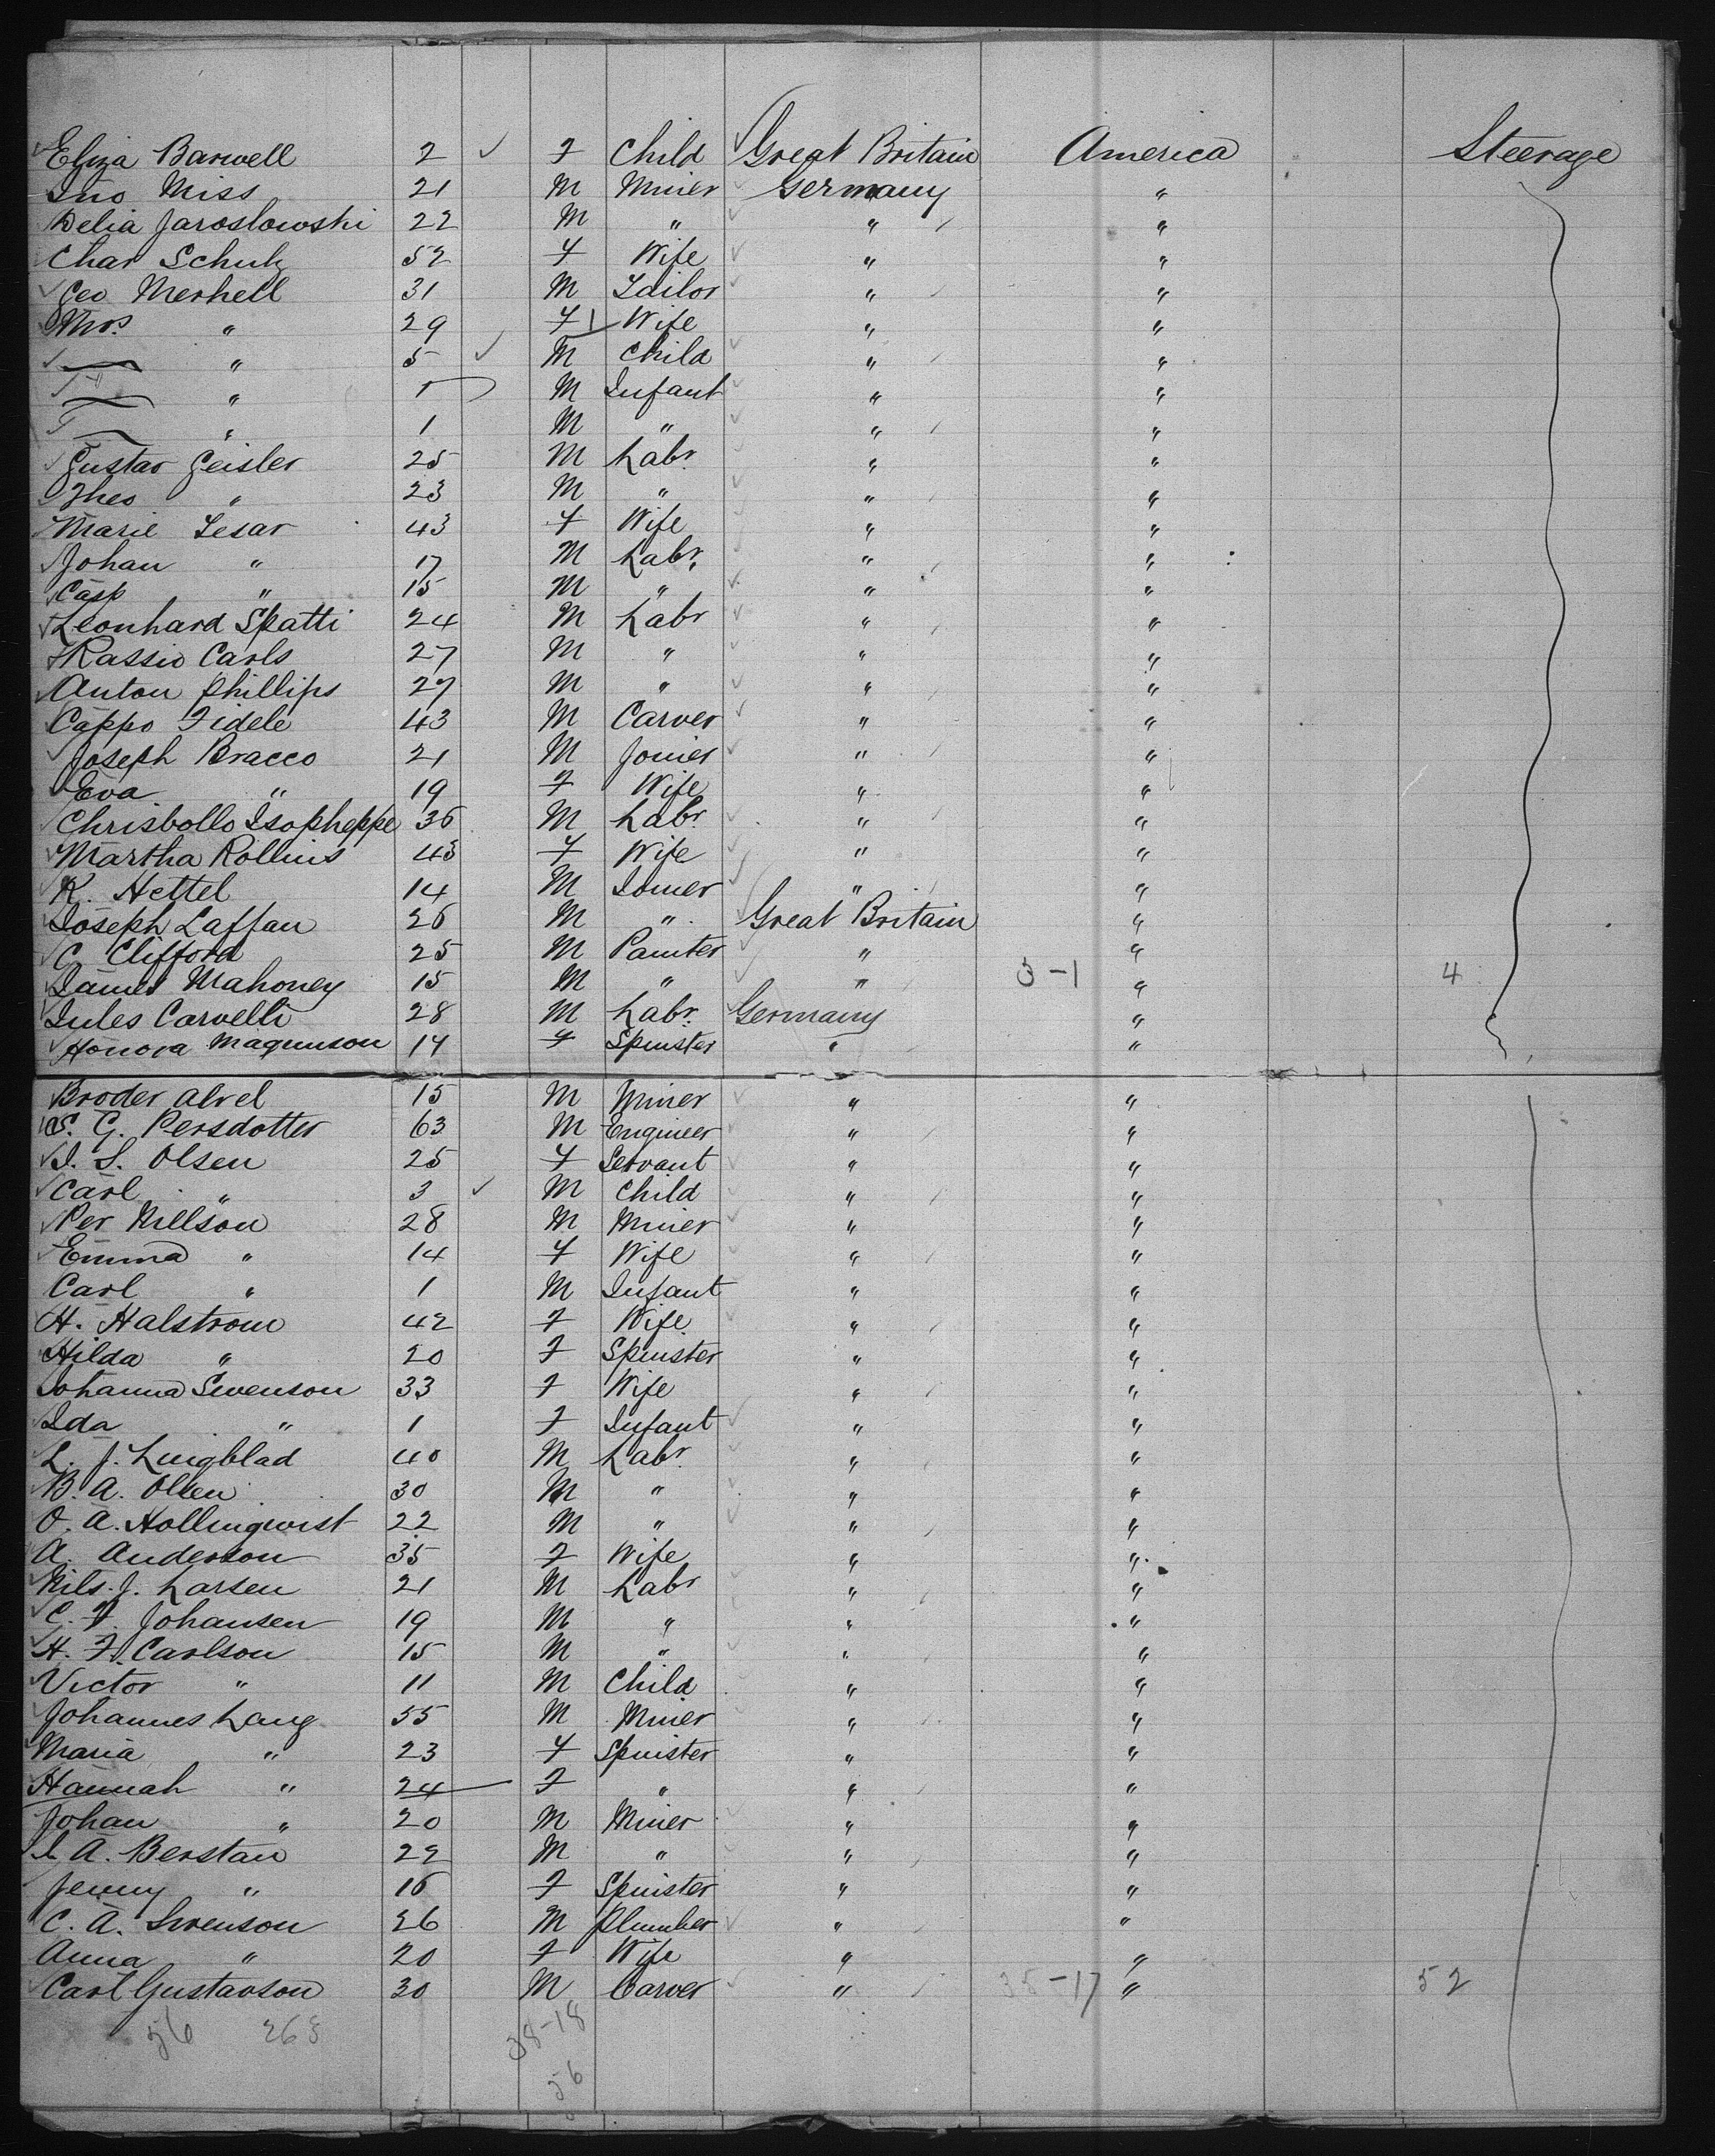 Eliza Barwell 2 F Child Great Britain America Steerage
Jno Miss 21 M Miner Germany "
Delia Jaroslowski 22 M " " "
Char Schulz 52 F Wife " "
Geo Merhell 31 M Tailor " "
Mrs " 29 F 1 Wife " "
" 5 M Child " "
" 1 M Infant " "
" 1 M " " "
Gustav Geisler 25 M Labr " "
Theo " 23 M " " "
Marie Lesar 43 F Wife " "
Johan " 17 M Labr. " "
Casp " 15 M " " "
Leonhard Spatti 24 M Labr " "
Rassio Carls 27 M " " "
Anton Phillips 27 M " " "
Cappo Fidele 43 M Carver " "
Joseph Bracco 21 M Joiner " "
Eva " 19 F Wife " "
Chrisbollo Isopheppe 36 M Labr. " "
Martha Rollins 43 F Wife " "
K. Hettel 14 M " "
Joseph Laffan 26 M " Great Britain "
C. Clifford 25 M Painter " "
James Mahoney 15 M " " 3-1 " 4
Jules Carvelli 28 M Labr. Germany "
Honora Magnuson 14 F Spinster " "
Broder Alvel 15 M Miner " "
S. G. Persdotter 63 M Engineer " "
I. S. Olsen 25 F Servant " "
Carl " 3 M Child " "
Per Nillson 28 M Miner " "
Emma " 14 F Wife " "
Carl " 1 M Infant " "
H. Halstrom 42 F Wife " "
Hilda " 20 F Spinster " "
Johanna Swenson 33 F Wife " "
Ida " 1 F Infant " "
L. J. Lungblad 40 M Labr. " "
B. A. Olsen 30 M " " "
O. A. Hollingwist 22 M " " "
A. Anderson 35 F Wife " "
Nils. J. Larsen 21 M Labr " "
C. F. Johansen 19 M " " "
H. F. Carlson 15 M " " "
Victor " 11 M Child " "
Johannes Lang 55 M Miner " "
Maria " 23 F Spinster " "
Hannah " 24 F " " "
Johan " 20 M Miner " "
A. Berstan 22 M " " "
Jenny " 16 F Spinster " "
C. A. Swenson 26 M Plumber " "
Anna " 20 F Wife " "
Carl Gustavson 30 M Carver " 35-17 " 52
56 263 38-18
56